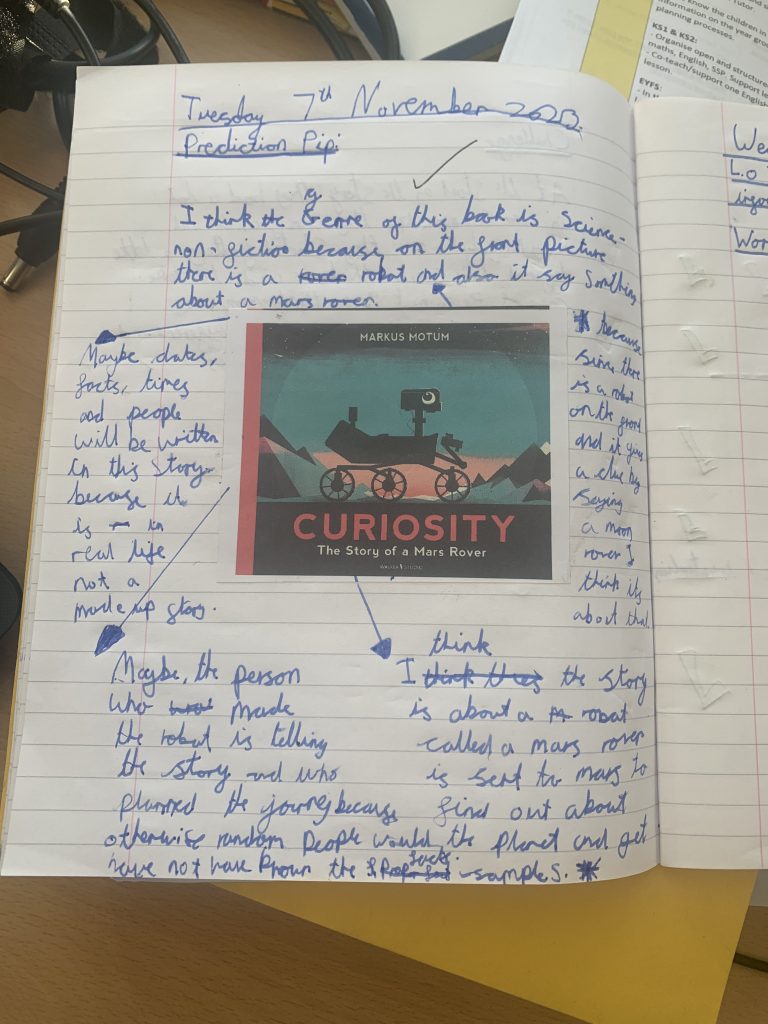 Tuesday 7th November
Prediction Pip.
I think the Genre of this book is Science-
non-fiction because on the front picture
there is a rover robot and also it say Somthing
about a mars rover.
Maybe dates,
facts, times
and people
will be written
in this story
because it
is in
real life
not a
made up story.
MARKUS MOTUM
CURIOSITY
The Story of a Mars Rover
WALKER STUDIO
* because
since there
is a robot
on the front
and it gives
a clue by
saying
a moon
rover I
think its
about that.
Maybe, the person
who made
the robot is telling
the story and who
planned the journey because
otherwise random people would
have not have known the facts.
think
I the story
is about a robot
called a mars rover
is sent to mars to
find out about
the planet and get
samples. *
know the children in
information on the year
planning processes.
KS1 & KS2:
- Organise open and structure
maths, English, SSP Support
- Co-teach/support one English
lesson.
EYFS:
We
L.O
Wor